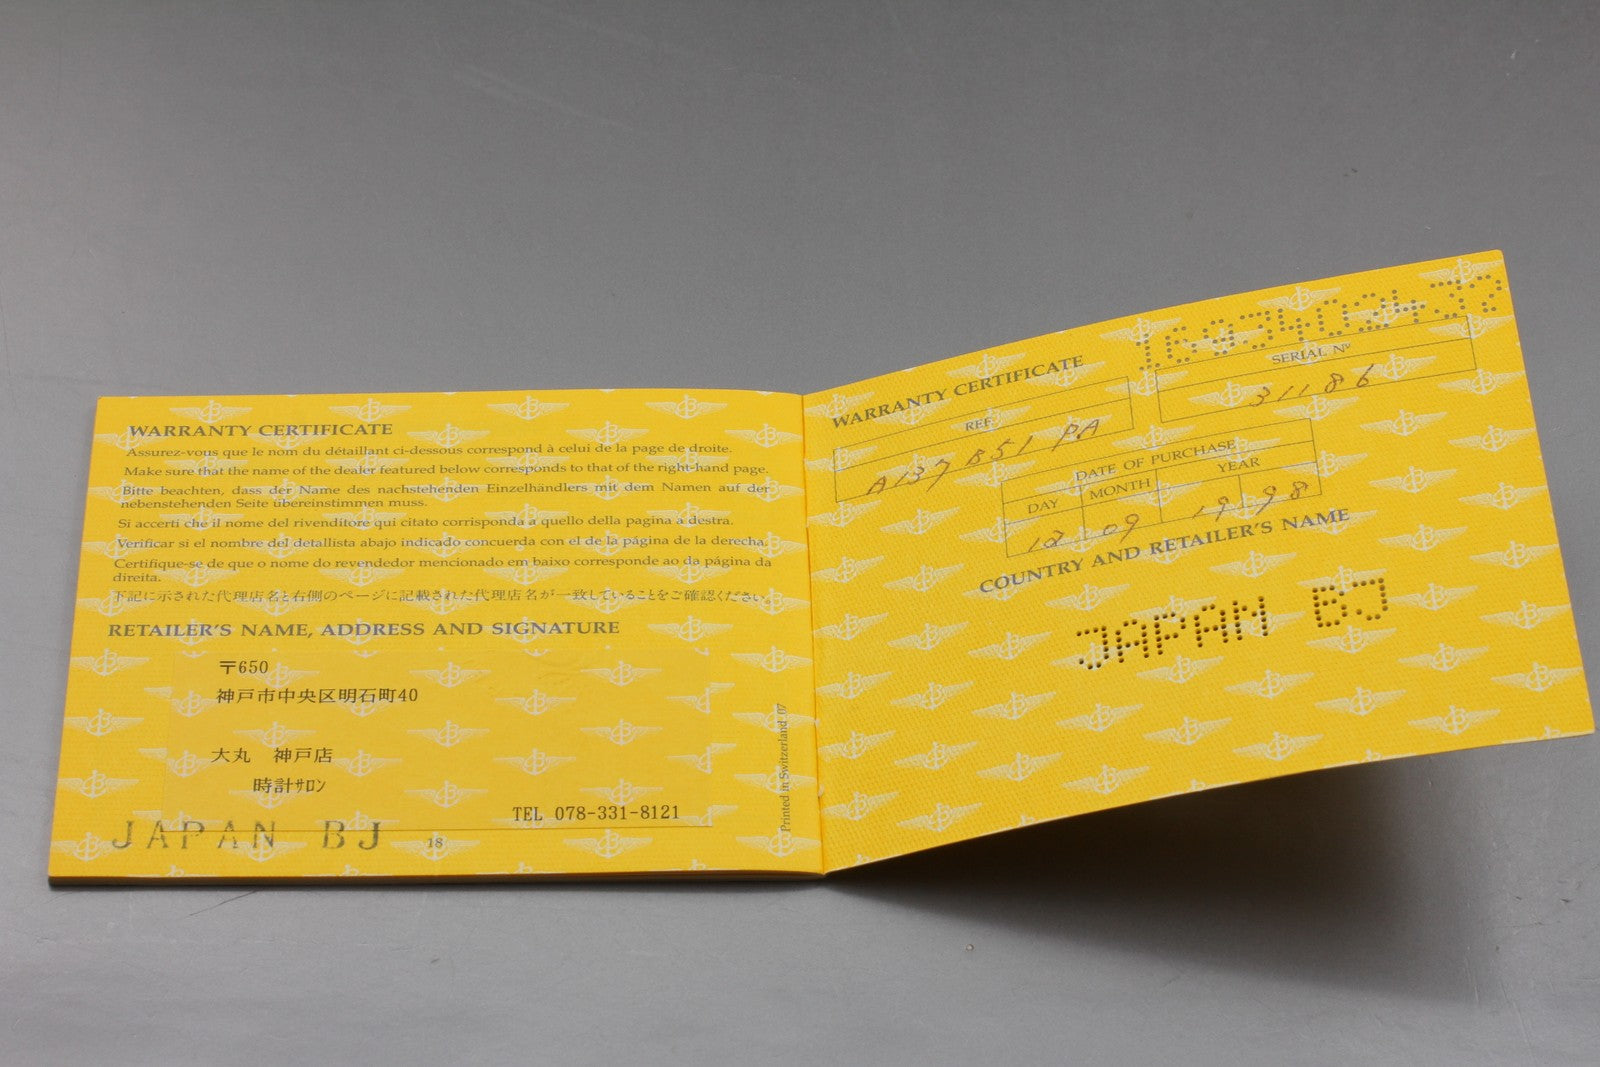 WARRANTY CERTIFICATE
Assurez-vous que le nom du détaillant ci-dessous correspond à celui de la page de droite.
Make sure that the name of the dealer featured below corresponds to that of the right-hand page.
Bitte beachten, dass der Name des nachstehenden Einzelhändlers mit dem Namen auf der
nebenstehenden Seite übereinstimmen muss.
Si accerti che il nome del rivenditore qui citato corrisponda a quello della pagina a destra.
Verificar si el nombre del detallista abajo indicado concuerda con el de la página de la derecha.
Certifique-se de que o nome do revendedor mencionado em baixo corresponde ao da página da
direita.
下記に示された代理店名と右側のページに記載された代理店名が一致していることをご確認ください。
RETAILER'S NAME, ADDRESS AND SIGNATURE
〒650
神戸市中央区明石町40
大丸 神戸店
時計ｻﾛﾝ
TEL 078-331-8121
JAPAN BJ
18
Printed in Switzerland 07
WARRANTY CERTIFICATE
REF.
A137 B51 PA
SERIAL Nº
31186
DATE OF PURCHASE
DAY MONTH YEAR
12 09 1998
COUNTRY AND RETAILER'S NAME
JAPAN BJ